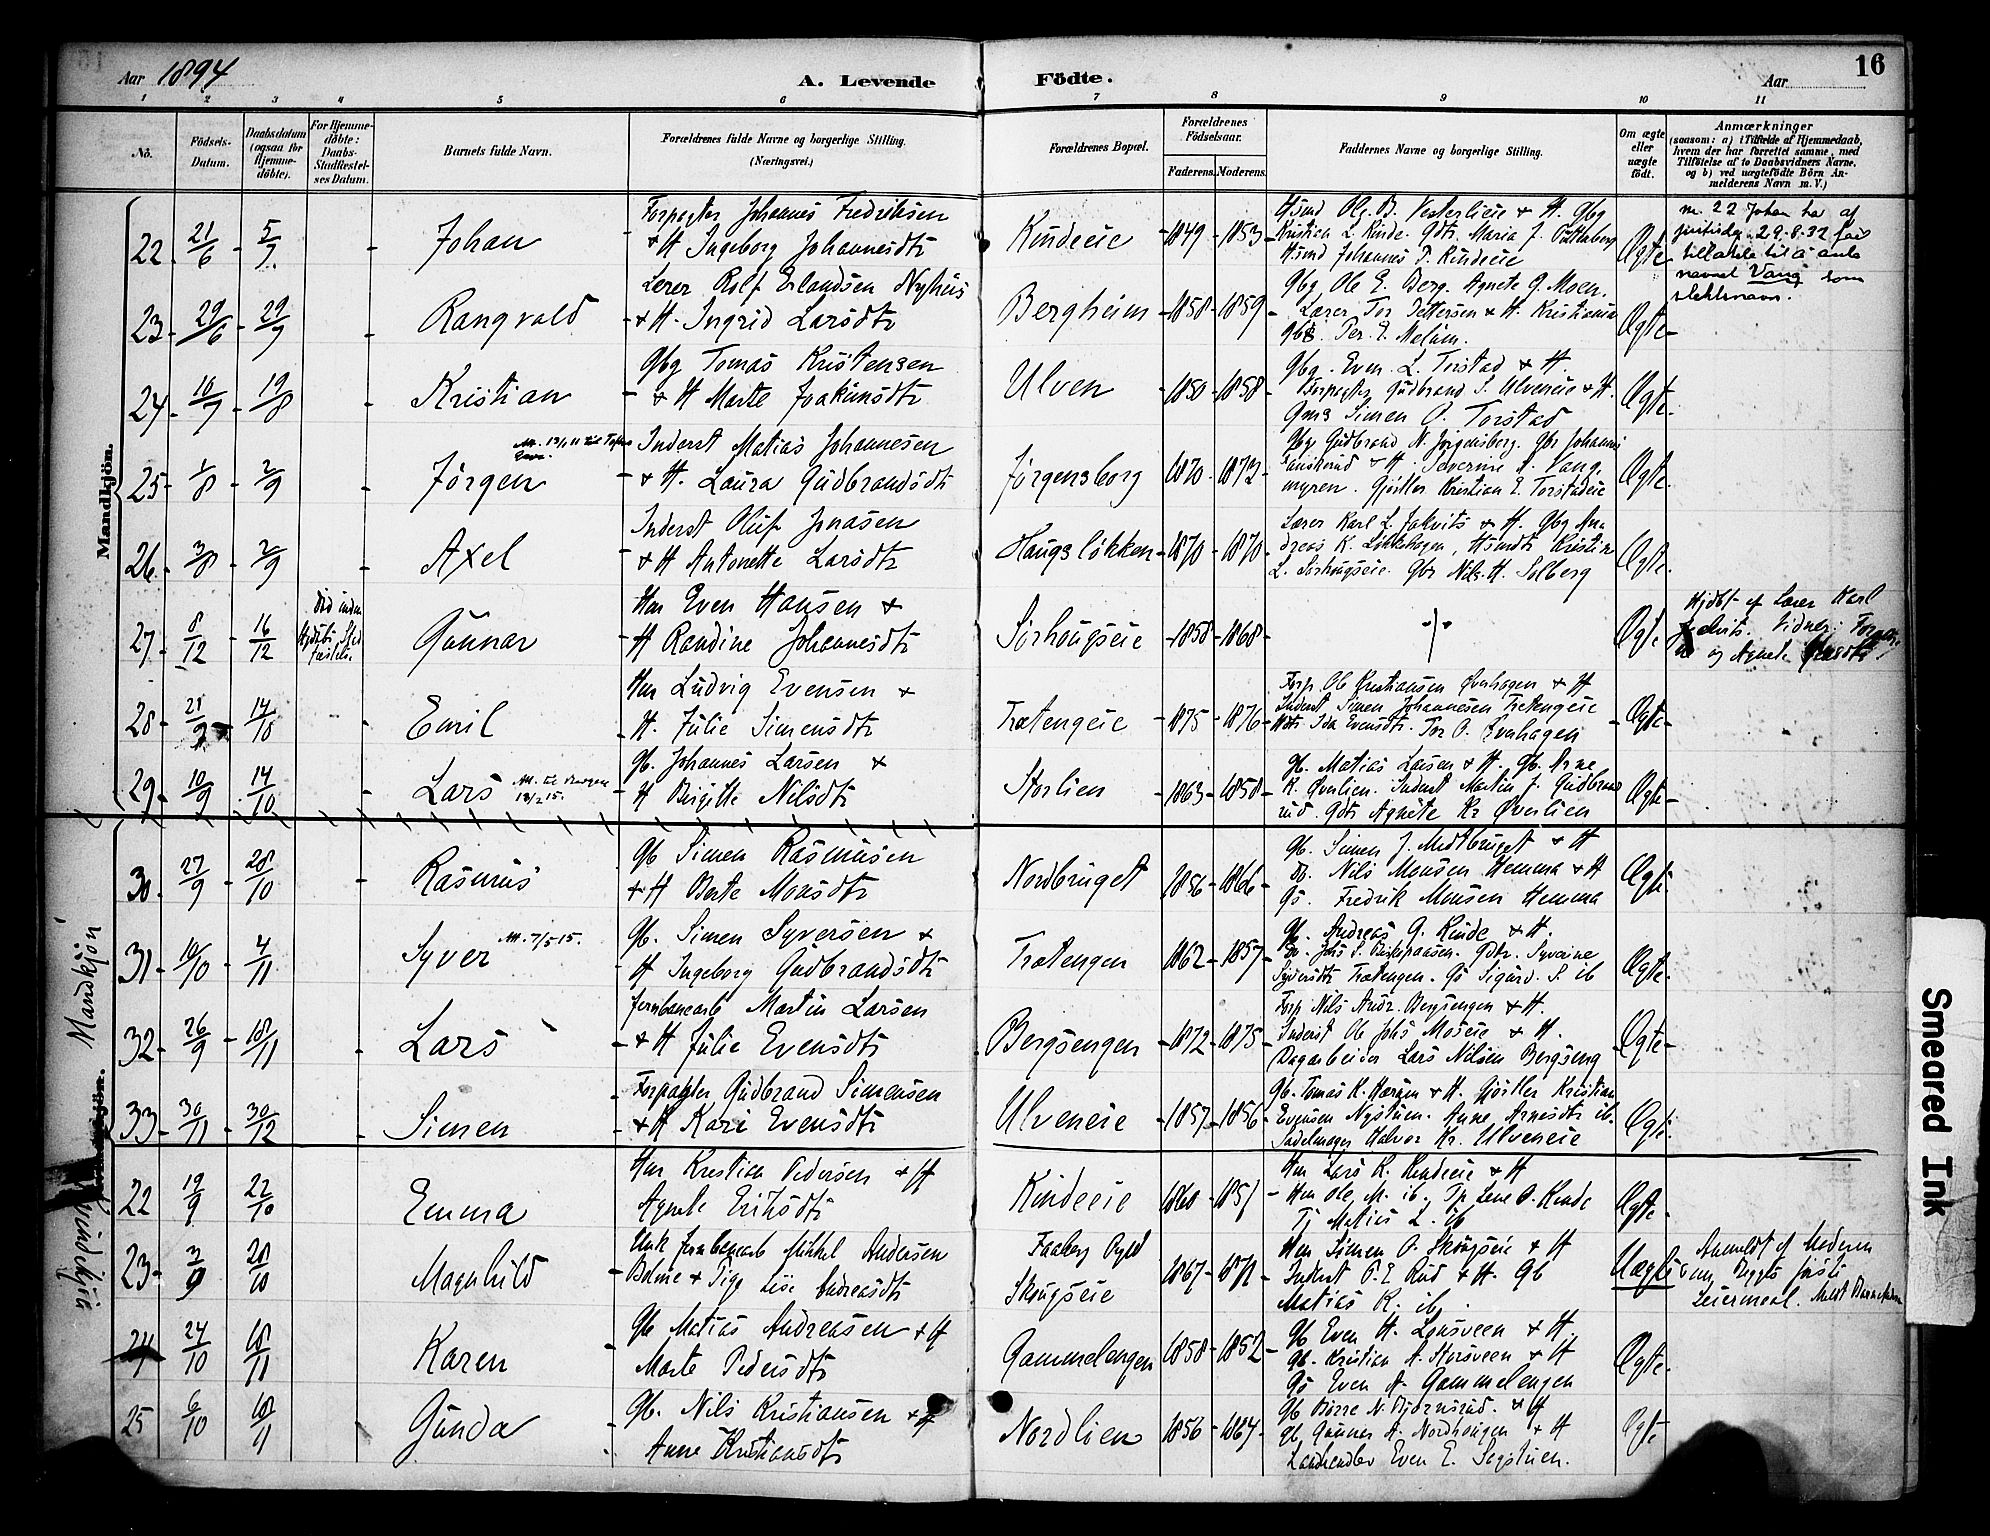 Aar 1894
A. Levende Födte.
Aar
16
1 2 3 4 5 6 7 8 9 10 11
No.
Födsels-Datum.
Daabsdatum (ogsaa for Hjemme-döbte).
For Hjemme-döbte: Daabs-Stadfæstel-ses Datum.
Barnets fulde Navn.
Forældrenes fulde Navne og borgerlige Stilling. (Næringsvei.)
Forældrenes Bopæl.
Forældrenes Födselsaar.
Faderens. Moderens.
Faddernes Navne og borgerlige Stilling.
Om ægte eller uægte födt.
Anmærkninger
(saasom: a) i Tilfælde af Hjemmedaab, hvem der har forrettet samme, med Tilföielse af to Daabsvidners Navne, og b) ved uægtefödte Börn An-melderens Navn m. V.)
Mandkjön.
22 21/6 5/7 Johan
Forpagter Johannes Fredriksen
+ H Ingeborg Johannesdtr
Kindeeie 1849 1853
Kristian L. Kinde. Gdtr. Maria J.
Hsmd Johannes P. Kindeeie
Ægte
nr. 22 Johan har af
29.8.32 faa
tillatelse til å anta
navnet Vang som
slektsnavn.
23 29/6 29/7 Rangvald
Lærer Rolf Erlandsen Nyhus
+ H. Ingrid Larsdtr
Bergheim 1858 1859
Gbg Ole E. Berg. Agnete G. Moen.
Lærer Tor Pettersen + H. Kristiania
Per. E. Melum.
Ægte
24 16/7 19/8 Kristian
Gbg Tomas Kristensen
+ H Marte Joakimsdtr
Ulven 1850 1858
Gbg. Even L. Torstad + H.
Forpagter Gudbrand S. Ulveneie + H.
Gms Simen O. Torstad
Ægte
25 1/8 2/9 Jörgen
Inderst Matias Johannesen
+ H. Laura Gudbrandsdtr
Jörgensborg 1870 1873
Gbg Gudbrand N. Jörgensborg. Gbr Johannes
+ H Severine A. Vang
myren. Gjörtler Kristian E. Torstadeie
Ægte
26 3/8 2/9 Axel
Inderst Oluf Jonasen
+ H Antonette Larsdtr
Haugslökken 1870 1870
Lærer Karl L. Jakvits + H. Gbg An
dreas K. Lökkehagen, Hsmdtr Kristin
L. Sörhougseie. Gbr Nils H. Solberg
Ægte
27 8/12 16/12 Död inden
Gunnar
Hsm Even Hansen +
H Randine Johannesdtr
Sörhougseie 1858 1868
Ægte
Hjdbt af Lærer Karl
Jakvits. Vidner:
og Agnete
28 21/7 14/10 Emil
Hsm Ludvig Evensen +
H. Julie Simensdtr
Trætengeie 1875 1876
Forp Ole Kristiansen Överhagen + H
Inderst Simen Johannesen Trætengeie
Ida Evensdtr. Tor O. Överhagen
Ægte
29 10/9 14/10 Lars
Gb. Johannes Larsen +
H Birgitte Nilsdtr
Storlien 1863 1858
Gb. Matias Larsen + H. Gb. Arne
K. Överlien. Inderst Martin J. Gudbrans
rud. Gdtr Agnete Kr Överlien
Ægte
Mandkjön
30 27/9 28/10 Rasmus
Gb Simen Rasmusen
+ H Berte Monsdtr
Nordbruget 1856 1866
Gb. Simen J. Medtbruget + H
Nils Monsen Hemma + H
Gs. Fredrik Monsen Hemma
Ægte
31 10/10 4/11 Syver
Gb. Simen Syversen +
H Ingeborg Gudbrandsdtr
Trætengen 1862 1857
Gb. Andreas G. Kinde + H.
Syversdtr Trætengen. Gs Sigurd. S. ib
Ægte
32 26/9 18/11 Lars
Jernbanearb Martin Larsen
+ H Julie Evensdtr
Bergsengen 1872 1875
Forp Nils Andr. Bergsengen + H.
Inderst Ole Johs Moseie + H.
Dagarbeider Lars Nilsen Bergseng
Ægte
33 30/11 30/12 Simen
Forpagter Gudbrand Simensen
+ H Kari Evensdtr
Ulveneie 1857 1856
Gb. Tomas K. + H. Gjörtler Kristian
Evensen Nystuen. Anne Arnesdtr ib.
Sadelmager Halvor Kr. Ulveneie
Ægte
Kvindekjön
22 19/9 22/10 Emma
Hsm Kristian Pedersen + H
Agnete Eriksdtr
Kindeeie 1860 1851
Hsm Lars K. Kindeeie + H
Hsm Ole M. ib. Tp Lene O. Kinde
Tj Matias L. ib
Ægte
23 3/9 28/10 Magnhild
Unk Jernbanearb Mikkel Andersen
Bolme + Pige Lise Andreasdtr
Faaberg
Skougseie
1867 1871
Hsm Simen O. Skougseie + H
Inderst P. E Rud + H. Gb
Matias K. ib.
Uægte
Anmeldt af Moderen
Begges förste
Leiermaal.
24 24/10 18/11 Karen
Gb Matias Andreasen + H
Marte Pedersdtr
Gammelengen 1858 1852
Gb Even H. Lonsveen + H.
Gb. Kristian A. Storsveen + H
Gs Even A. Gammelengen
Ægte
25 6/10 18/11 Gunda
Gb. Nils Kristiansen + H
Anne Kristiansdtr
Nordlien 1856 1864
Gb Börre N. Björnsrud. + H
Gb. Gunnar A. Nordhougen + H
Landhandler Even E. Segstuen.
Ægte
Smeared Ink